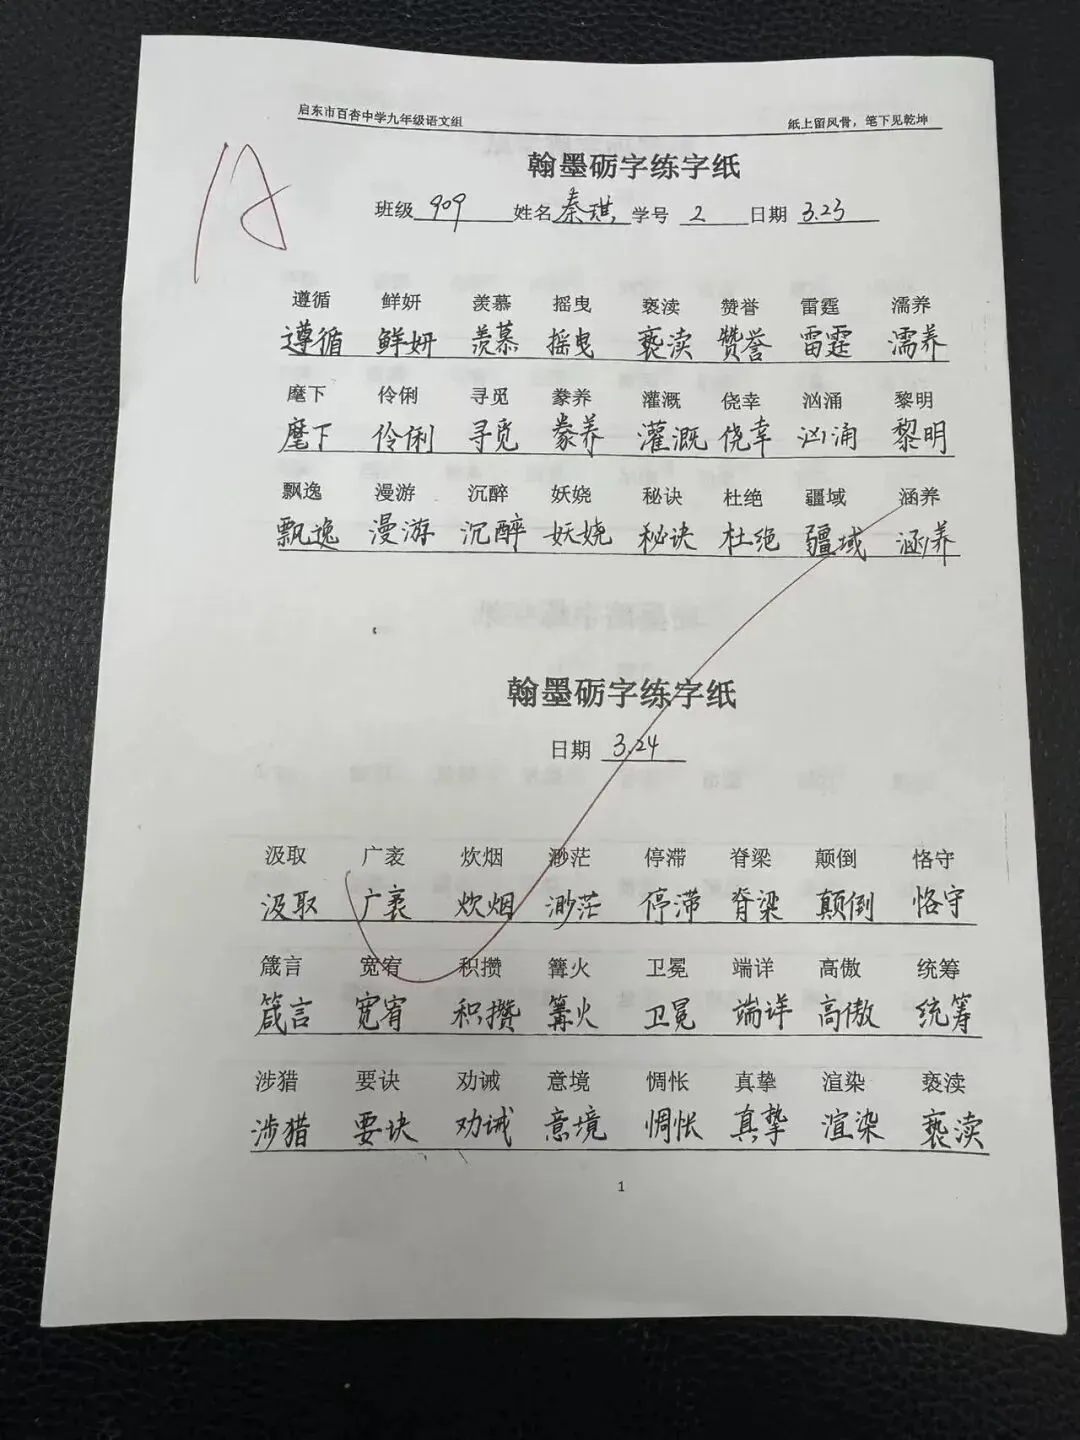 启东市百杏中学九年级语文组 纸上留风骨，笔下见乾坤
A
翰墨砺字练字纸
班级 909 姓名 秦琪 学号 2 日期 3.23
遵循 鲜妍 羡慕 摇曳 亵渎 赞誉 雷霆 濡养
遵循 鲜妍 羡慕 摇曳 亵渎 赞誉 雷霆 濡养
麾下 伶俐 寻觅 豢养 灌溉 侥幸 汹涌 黎明
麾下 伶俐 寻觅 豢养 灌溉 侥幸 汹涌 黎明
飘逸 漫游 沉醉 妖娆 秘诀 杜绝 疆域 涵养
飘逸 漫游 沉醉 妖娆 秘诀 杜绝 疆域 涵养
翰墨砺字练字纸
日期 3.24
汲取 广袤 炊烟 渺茫 停滞 脊梁 颠倒 恪守
汲取 广袤 炊烟 渺茫 停滞 脊梁 颠倒 恪守
箴言 宽宥 积攒 篝火 卫冕 端详 高傲 统筹
箴言 宽宥 积攒 篝火 卫冕 端详 高傲 统筹
涉猎 要诀 劝诫 意境 惆怅 真挚 渲染 亵渎
涉猎 要诀 劝诫 意境 惆怅 真挚 渲染 亵渎
1